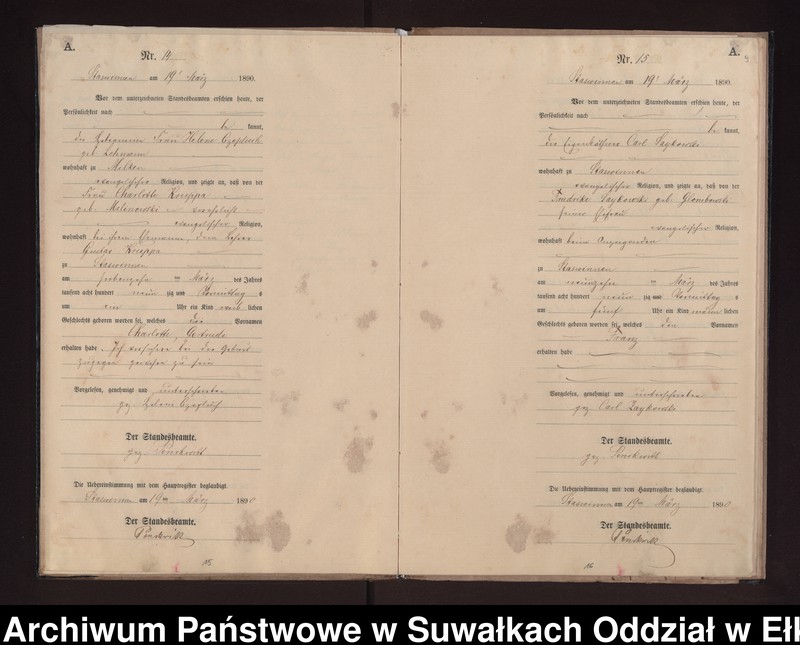 A.
Nr. 14
Stassewnen am 19 März 1890.
Vor dem unterzeichneten Standesbeamten erschien heute, der
Persönlichkeit nach
be kannt,
die Hebeamme Frau Helene
geb. Lehmann
wohnhaft zu Milken
evangelischer Religion, und zeigte an, daß von der
Frau Charlotte
geb.
evangelischer Religion,
wohnhaft bei ihrem Ehemanne, dem Lehrer
Gustav
zu
am siebenzehn ten März des Jahres
tausend acht hundert neun zig um Vormittag s
um ein Uhr ein Kind weib lichen
Geschlechts geboren worden sei, welches die Vornamen
Charlotte, Gertrude
erhalten habe. Ich versichere bei der Geburt
zugegen gewesen zu sein
Vorgelesen, genehmigt und unterschrieben
gez. Helene
Der Standesbeamte.
gez.
Die Uebereinstimmung mit dem Hauptregister beglaubigt.
am 19ten März 1890
Der Standesbeamte.
15
A.
9
Nr. 15
am 19 März 1890.
Vor dem unterzeichneten Standesbeamten erschien heute, der
Persönlichkeit nach
be kannt,
der Eigenkäthner Carl Zaykowski
wohnhaft zu
evangelischer Religion, und zeigte an, daß von der
Zaykowski geb.
seiner Ehefrau
evangelischer Religion,
wohnhaft beim Anzeigenden
zu
am neunzehn ten März des Jahres
tausend acht hundert neun zig um Vormittag s
um fünf Uhr ein Kind männ lichen
Geschlechts geboren worden sei, welches den Vornamen
Franz
erhalten habe
Vorgelesen, genehmigt und unterschrieben
gez. Carl Zaykowski
Der Standesbeamte.
gez.
Die Uebereinstimmung mit dem Hauptregister beglaubigt.
am 19ten März 1890
Der Standesbeamte.
16
Archiwum Państwowe w Suwałkach Oddział w Ełk